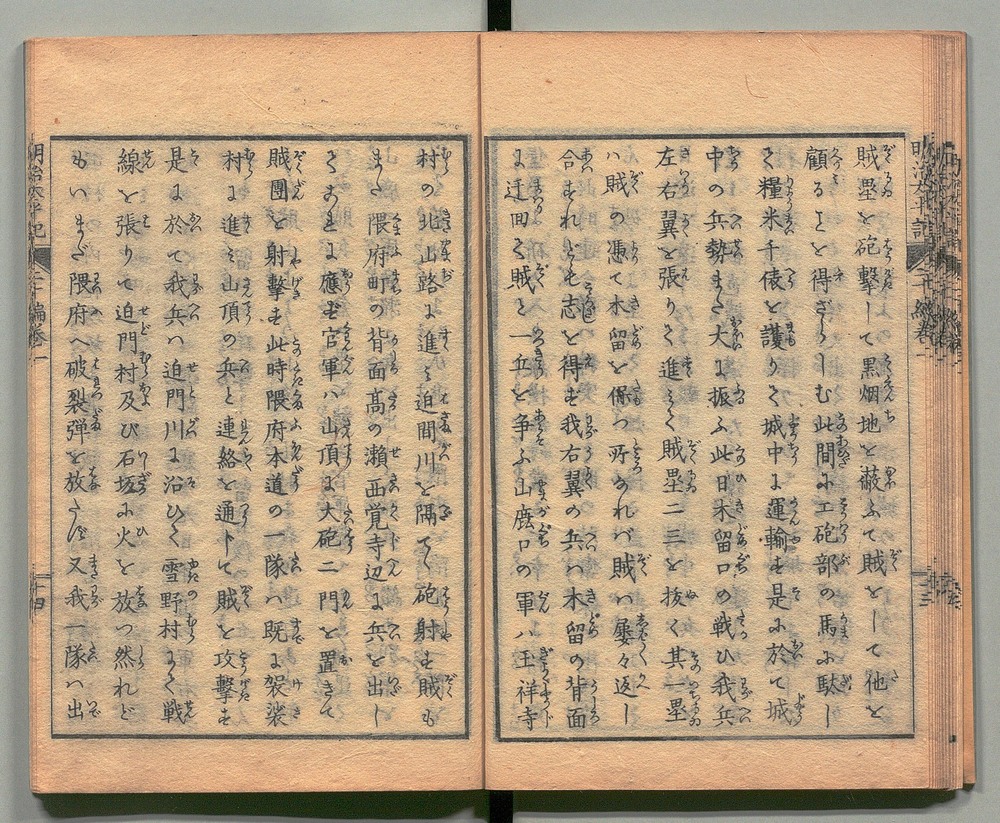 賊塁を砲撃して黒烟地を蔽ふて賊をして他を
顧るとを得ざらしむ此間に工砲部の馬に駄し
て糧米千俵を護りて城中に運輸す是に於て城
中の兵勢また大に振ふ此日木留口の戦ひ我兵
左右翼を張りて進みて賊塁二三を抜く其一塁
ハ賊の憑て木留を保つ所なれバ賊ハ屡々返し
合すれとも志を得ず我右翼の兵ハ木留の背面
に迂回て賊と一兵を争ふ山鹿口の軍ハ玉祥寺
村の北山路に進ミ迫間川を隔てく砲射す賊も
また隈府町の背面高の瀬西覚寺辺に兵を出し
てこれに應ず官軍ハ山頂に大砲二門を置きて
賊團を射撃す此時隈府本道の一隊ハ既に袈裟
村に進ミ山頂の兵と連絡を通トて賊を攻撃す
是に於て我兵ハ迫門川に沿ひて雪野村よく戦
線を張りて迫門村及び石坂に火を放つ然れど
もいまだ隈府へ破裂弾を放たず又我一隊ハ出
明治太平記
二十編巻一
十四